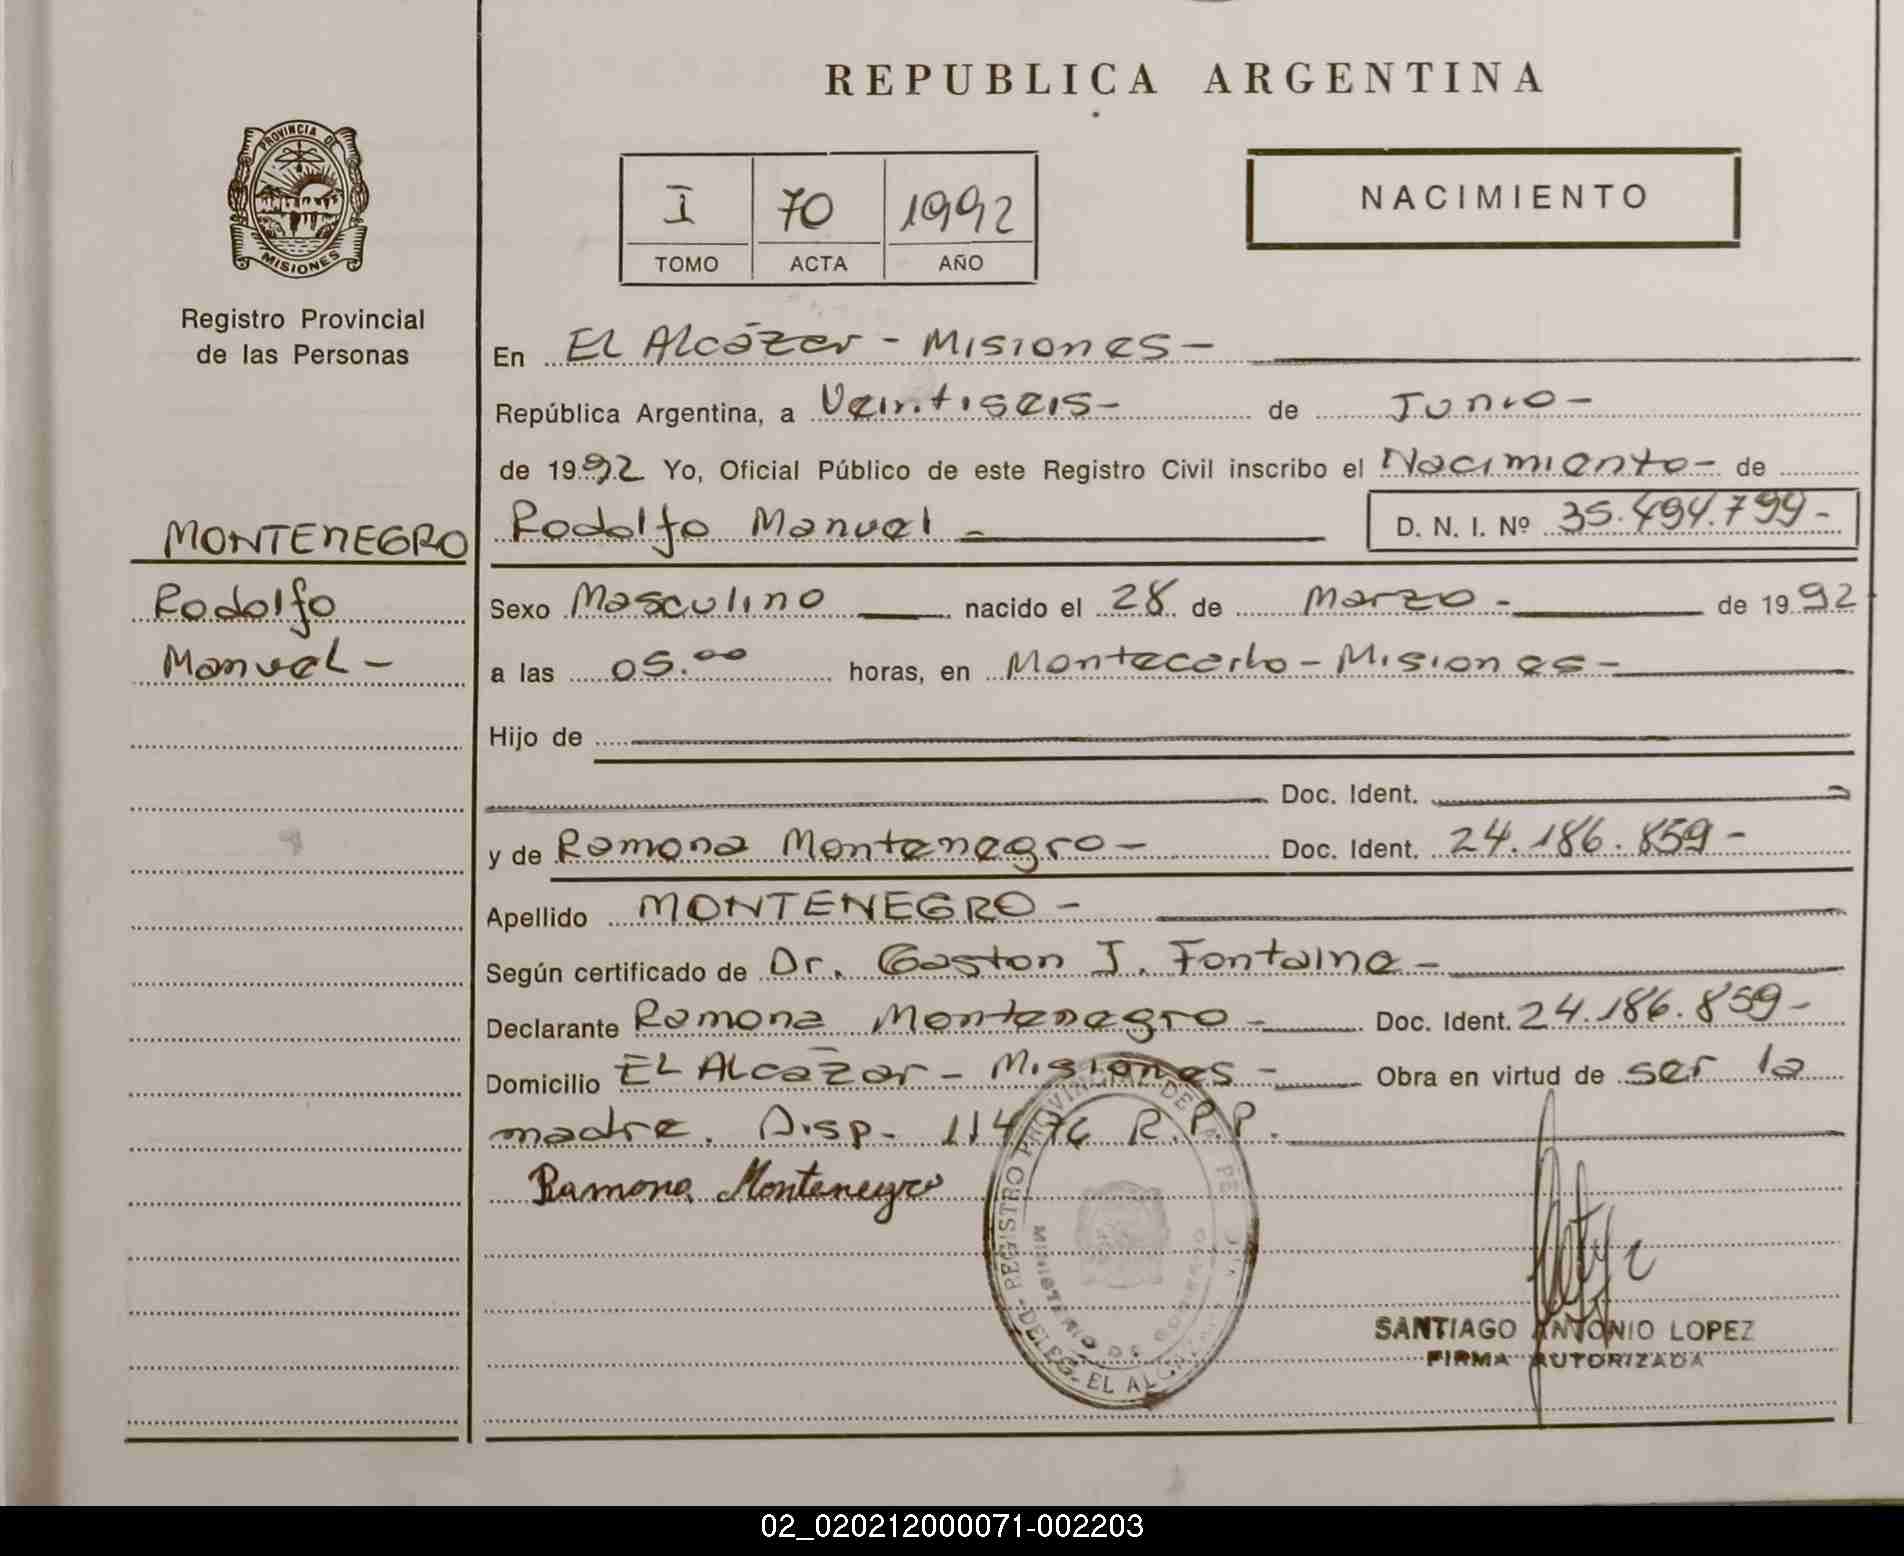 REPUBLICA ARGENTINA
PROVINCIA DE
MISIONES
I 70 1992
TOMO ACTA AÑO
NACIMIENTO
Registro Provincial
de las Personas
En El Alcázar - Misiones -
República Argentina, a Veintiseis - de Junio -
de 1992 Yo, Oficial Público de este Registro Civil inscribo el Nacimiento - de
Rodolfo Manuel - D. N. I. Nº 35.494.799 -
MONTENEGRO
Rodolfo
Manuel -
Sexo Masculino nacido el 28 de Marzo - de 1992
a las 05.00 horas, en Montecarlo - Misiones -
Hijo de
Doc. Ident.
y de Ramona Montenegro - Doc. Ident. 24.186.859 -
Apellido MONTENEGRO -
Según certificado de Dr. Gaston J. Fontaine -
Declarante Ramona Montenegro - Doc. Ident. 24.186.859 -
Domicilio El Alcázar - Misiones - Obra en virtud de ser la
madre. Disp. 114/76 R.P.P.
Ramona Montenegro
REGISTRO PROVINCIAL DE
MINISTERIO DE GOBIERNO
DELEG. EL ALCAZAR
SANTIAGO ANTONIO LOPEZ
FIRMA AUTORIZADA
02_020212000071-002203